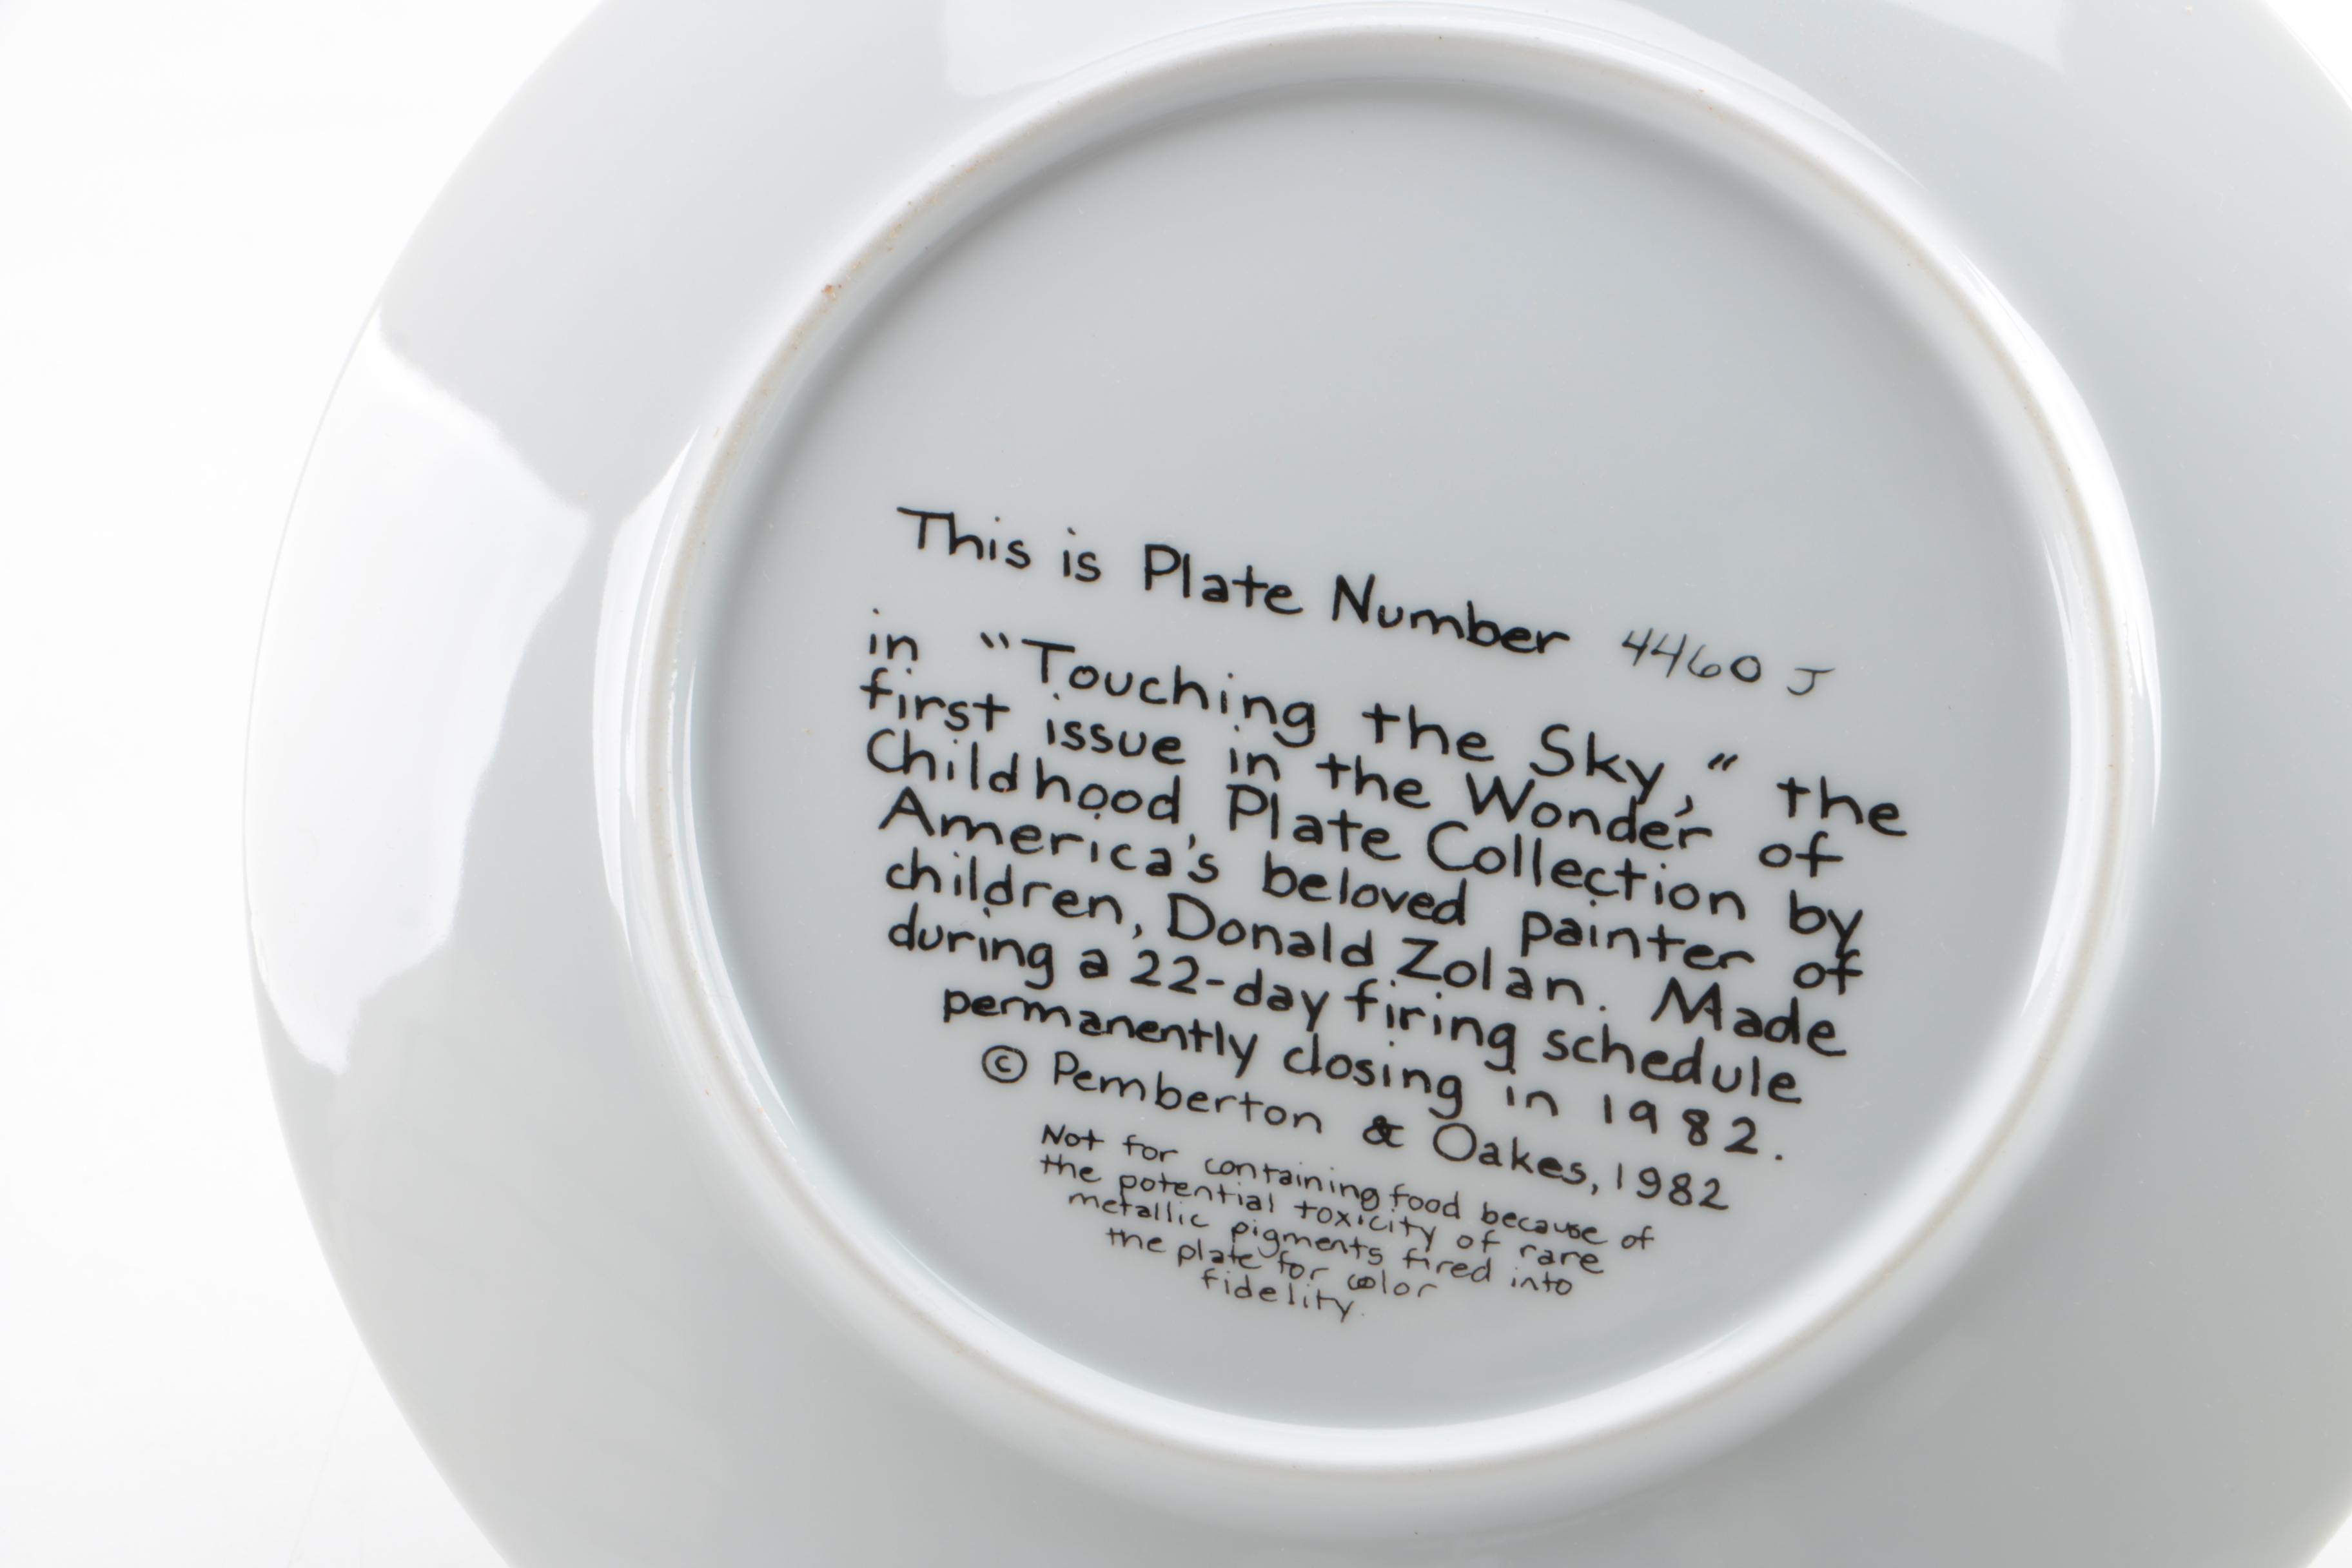 This is Plate Number 4460 J
in "Touching the Sky," the
first issue in the Wonder of
Childhood Plate Collection by
America's beloved painter of
children, Donald Zolan. Made
during a 22-day firing schedule
permanently closing in 1982.
© Pemberton & Oakes, 1982
Not for containing food because of
the potential toxicity of rare
metallic pigments fired into
the plate for color
fidelity.